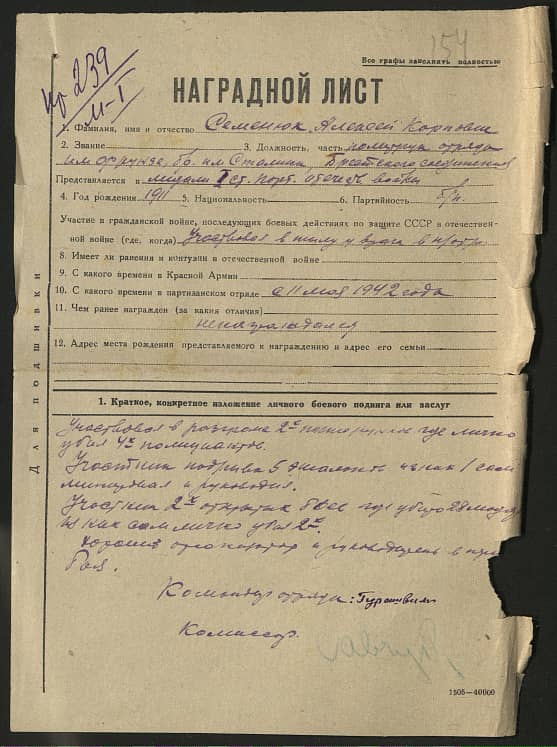 154
Все графы заполнить полностью
Пр 239
М-I
НАГРАДНОЙ ЛИСТ
1. Фамилия, имя и отчество Семенюк Алексей Карпович
2. Звание 3. Должность, часть политрук отряда
им Фрунзе, бр. им Сталина Брестского соединения
Представляется к медали I ст. парт. отечеств войны
4. Год рождения 1911 5. Национальность 6. Партийность б/п.
Участие в гражданской войне, последующих боевых действиях по защите СССР в отечествен-
ной войне (где, когда) Участвовал в тылу у врага в
8. Имеет ли ранения и контузии в отечественной войне
9. С какого времени в Красной Армии
10. С какого времени в партизанском отряде с 11 мая 1942 года
11. Чем ранее награжден (за какия отличия)
ненаграждался
12. Адрес места рождения представляемого к награждению и адрес его семьи
Для подшивки
1. Краткое, конкретное изложение личного боевого подвига или заслуг
Участвовал в разгроме 2х где лично
убил 4х полицантов.
Участник подрыва 5 эшалонов из них 1 сам
минировал и руководил.
Участник 2х открытых боев где убито 28
из них сам лично убил 2х.
Хороший и руководитель в
боя.
Командир отряда:
Комиссар
1505—40000